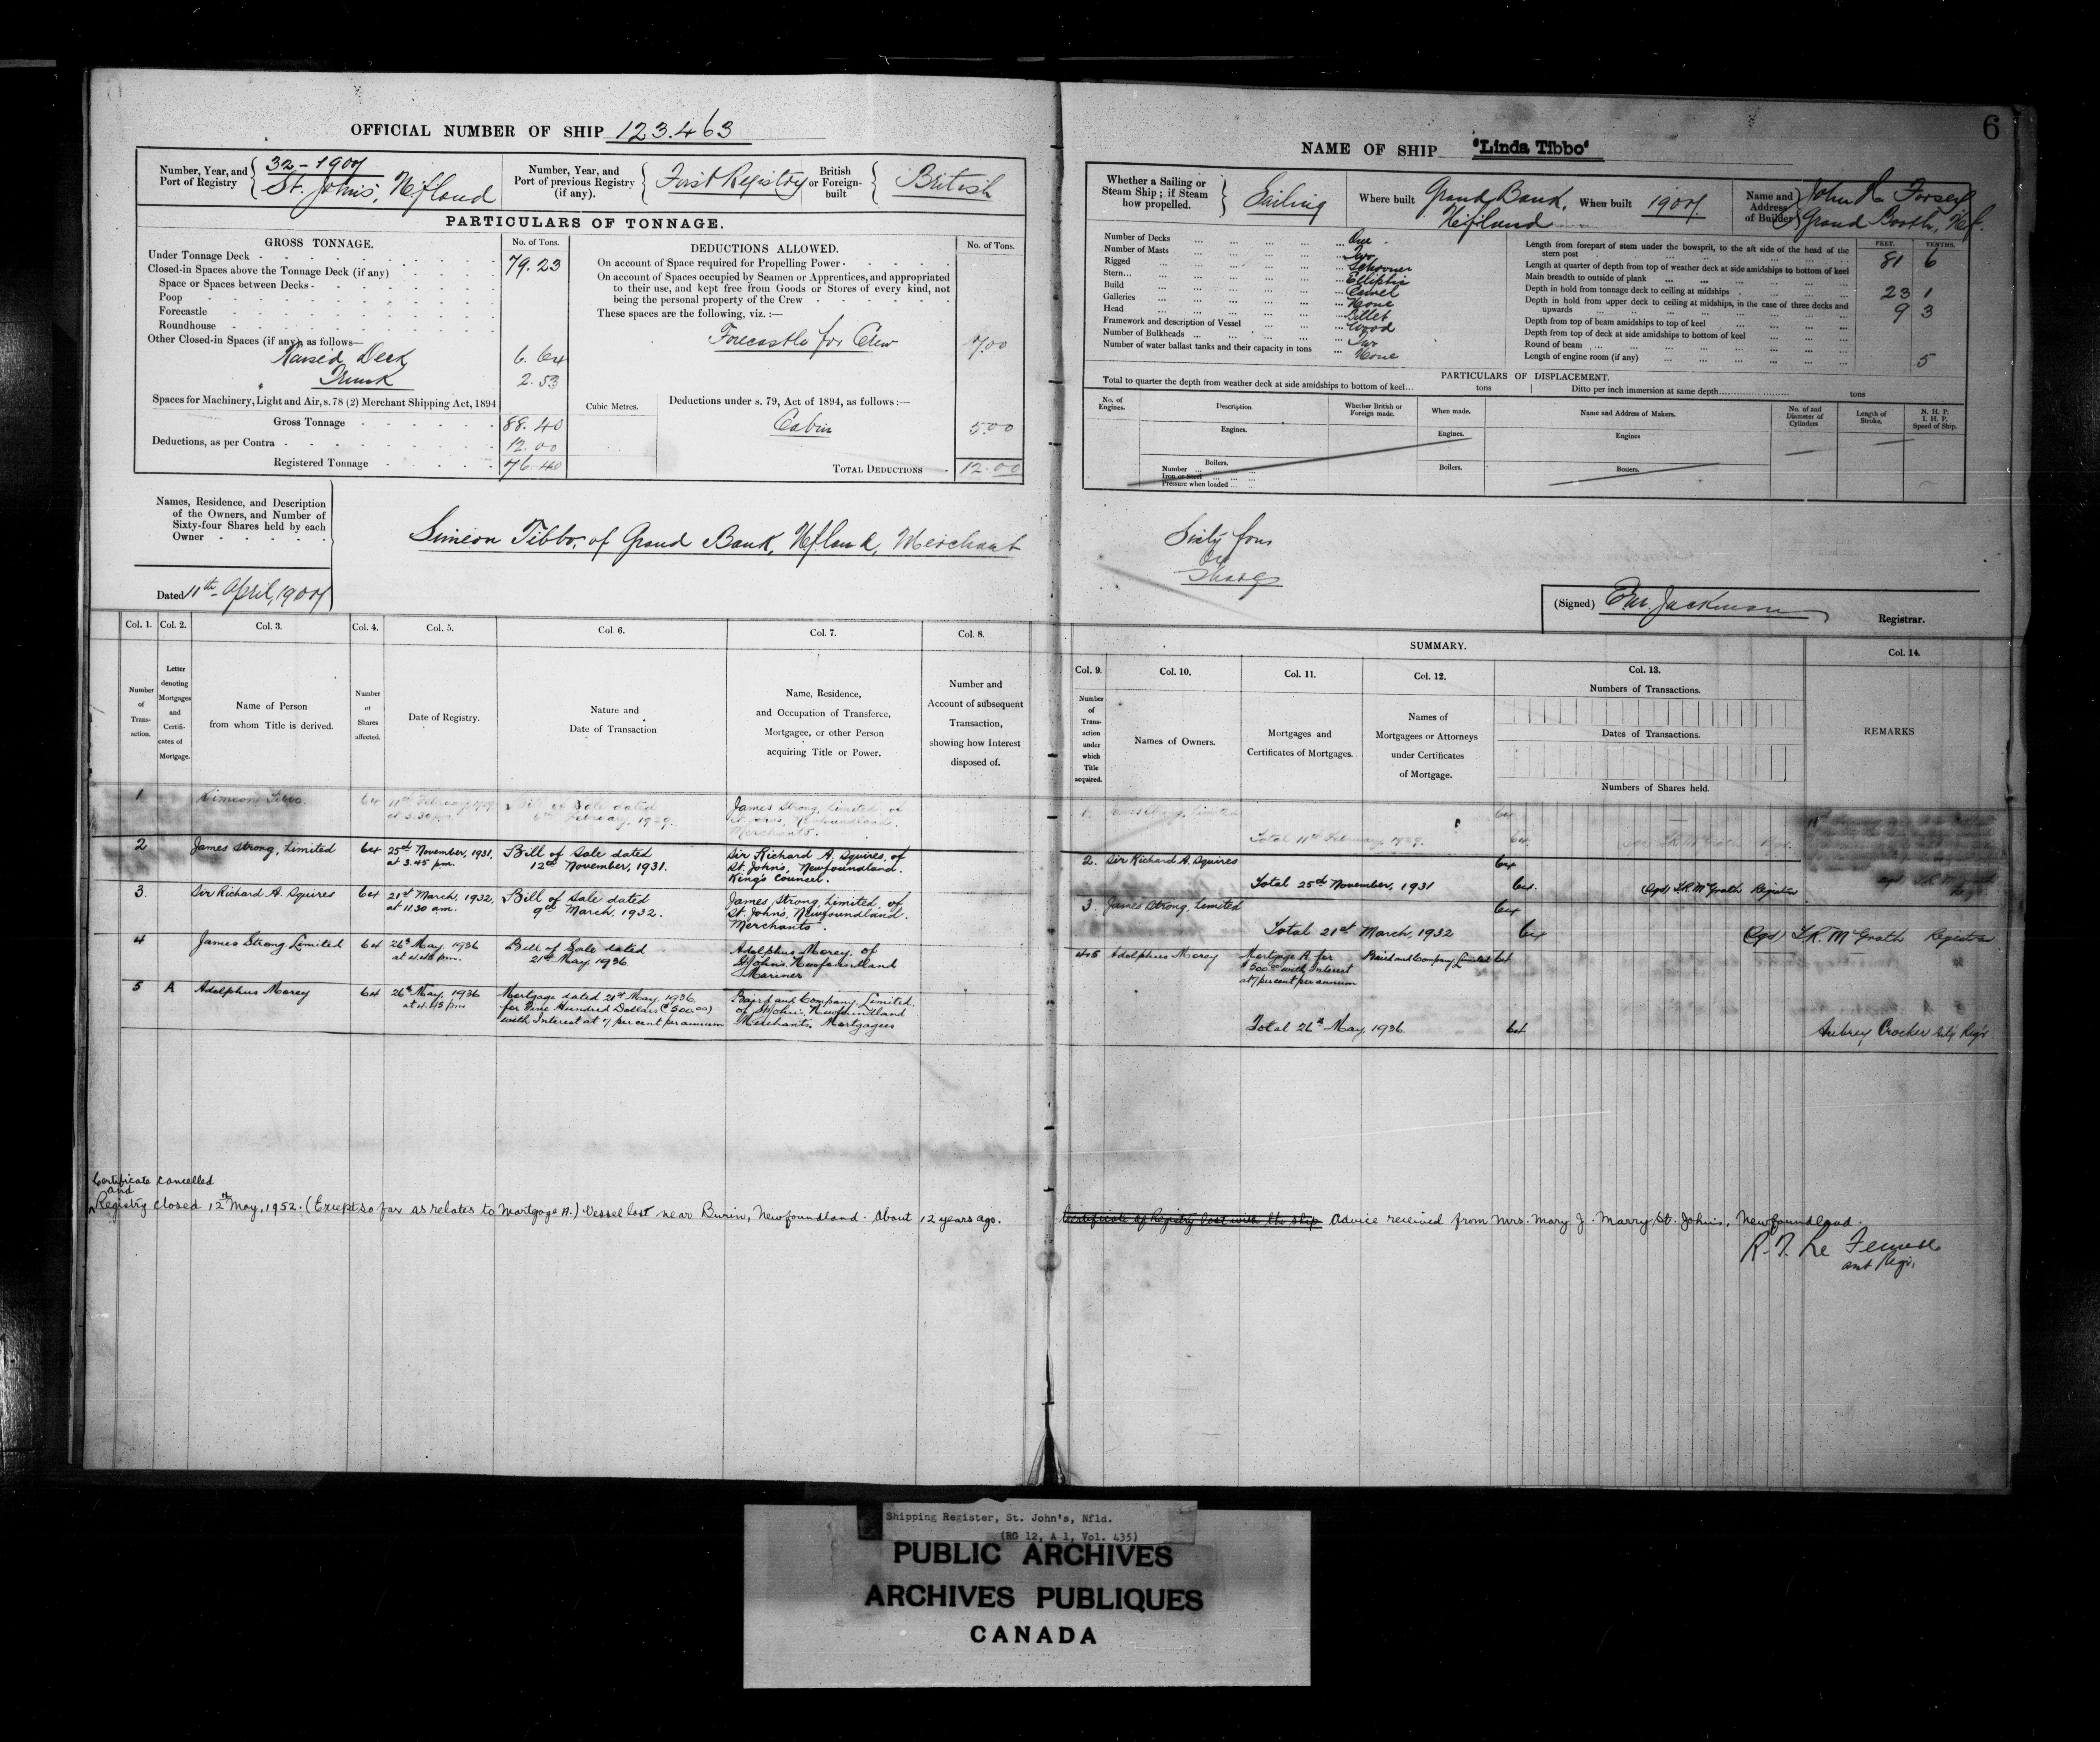 6
OFFICIAL NUMBER OF SHIP 123.463
NAME OF SHIP "Linda Tibbo"
Number, Year, and Port of Registry
32-1907
St. John's, Nfland
Number, Year, and Port of previous Registry (if any).
First Registry
British or Foreign-built
British
PARTICULARS OF TONNAGE.
GROSS TONNAGE.
No. of Tons.
Under Tonnage Deck 79.23
Closed-in Spaces above the Tonnage Deck (if any)
Space or Spaces between Decks
Poop
Forecastle
Roundhouse
Other Closed-in Spaces (if any) as follows—
Raised Deck 6.64
Trunk 2.53
Spaces for Machinery, Light and Air, s. 78 (2) Merchant Shipping Act, 1894
Gross Tonnage 88.40
Deductions, as per Contra 12.00
Registered Tonnage 76.40
Cubic Metres.
DEDUCTIONS ALLOWED.
No. of Tons.
On account of Space required for Propelling Power
On account of Spaces occupied by Seamen or Apprentices, and appropriated
to their use, and kept free from Goods or Stores of every kind, not
being the personal property of the Crew
These spaces are the following, viz. :—
Forecastle for Crew 7.00
Deductions under s. 79, Act of 1894, as follows :—
Cabin 5.00
TOTAL DEDUCTIONS 12.00
Whether a Sailing or Steam Ship; if Steam how propelled.
Sailing
Where built
Grand Bank, Nfland
When built 1907
Name and Address of Builder
John Forsey
Grand Nf.
Number of Decks One
Number of Masts Two
Rigged Schooner
Stern Elliptic
Build Carvel
Galleries None
Head Billet
Framework and description of Vessel Wood
Number of Bulkheads Two
Number of water ballast tanks and their capacity in tons None
FEET. TENTHS.
Length from forepart of stem under the bowsprit, to the aft side of the head of the
stern post 81 6
Length at quarter of depth from top of weather deck at side amidships to bottom of keel
Main breadth to outside of plank 23 1
Depth in hold from tonnage deck to ceiling at midships 9 3
Depth in hold from upper deck to ceiling at midships, in the case of three decks and
upwards
Depth from top of beam amidships to top of keel
Depth from top of deck at side amidships to bottom of keel
Round of beam 5
Length of engine room (if any)
PARTICULARS OF DISPLACEMENT.
Total to quarter the depth from weather deck at side amidships to bottom of keel... tons
Ditto per inch immersion at same depth tons
No. of Engines.
Description
Whether British or Foreign made.
When made.
Name and Address of Makers.
No. of and Diameter of Cylinders
Length of Stroke.
N. H. P.
I. H. P.
Speed of Ship.
Engines.
Engines.
Engines
Boilers.
Number
Iron or Steel
Pressure when loaded
Boilers.
Boilers.
Names, Residence, and Description
of the Owners, and Number of
Sixty-four Shares held by each
Owner
Simeon Tibbo, of Grand Bank, Nfland, Merchant
Sixty four
Shares
Dated 11th April, 1907
(Signed) Jackman
Registrar.
Col. 1. Col. 2. Col. 3. Col. 4. Col. 5. Col. 6. Col. 7. Col. 8.
Number of Transaction.
Letter denoting Mortgages and Certificates of Mortgage.
Name of Person from whom Title is derived.
Number of Shares affected.
Date of Registry.
Nature and Date of Transaction
Name, Residence, and Occupation of Transferee, Mortgagee, or other Person acquiring Title or Power.
Number and Account of subsequent Transaction, showing how Interest disposed of.
SUMMARY.
Col. 9. Col. 10. Col. 11. Col. 12. Col. 13. Col. 14.
Number of Transaction under which Title acquired.
Names of Owners.
Mortgages and Certificates of Mortgages.
Names of Mortgagees or Attorneys under Certificates of Mortgage.
Numbers of Transactions.
Dates of Transactions.
Numbers of Shares held.
REMARKS
1 Simeon Tibbo. 64 11th February, 1929, at 3.30 pm.
Bill of Sale dated
6th February, 1929.
James Strong, Limited, of
St. John's, Newfoundland.
Merchants.
2 James Strong, Limited 64 25th November, 1931, at 3.45 pm.
Bill of Sale dated
12th November, 1931.
Sir Richard A. Squires, of
St. John's, Newfoundland.
King's Counsel.
3. Sir Richard A. Squires 64 21st March, 1932, at 11.30 am.
Bill of Sale dated
9th March, 1932.
James Strong, Limited, of
St. John's, Newfoundland.
Merchants.
4 James Strong Limited 64 26th May, 1936 at 4.45 pm.
Bill of Sale dated
21st May, 1936
Adolphus Morey, of
St John's Newfoundland
Mariner
5 A Adolphus Morey 64 26th May, 1936 at 4.45 pm
Mortgage dated 21st May, 1936
for Five Hundred Dollars ($500.00)
with Interest at 7 per cent per annum
Baird and Company, Limited,
of St John's, Newfoundland
Merchants, Mortgagees
1. James Strong, Limited 64
Total 11th February, 1929. 64
2. Sir Richard A. Squires 64
Total 25th November, 1931 64. (Sgd) Registrar
3. James Strong, Limited 64
Total 21st March, 1932 64 (Sgd) McGrath Registrar
4&5 Adolphus Morey
Mortgage A. for
$500.00 with Interest
at 7 per cent per annum
Baird and Company Limited 64
Total 26th May, 1936 64
Aubrey Crocker Regr.
Certificate cancelled
and
Registry closed 12th May, 1952. (Except so far as relates to Mortgage A.) Vessel lost near Burin, Newfoundland. About 12 years ago.
Certificate of Registry lost with the ship Advice received from Mrs. Mary J. Marry, St. John's, Newfoundland.
Regr.
Shipping Register, St. John's, Nfld.
(RG 12, A 1, Vol. 435)
PUBLIC ARCHIVES
ARCHIVES PUBLIQUES
CANADA